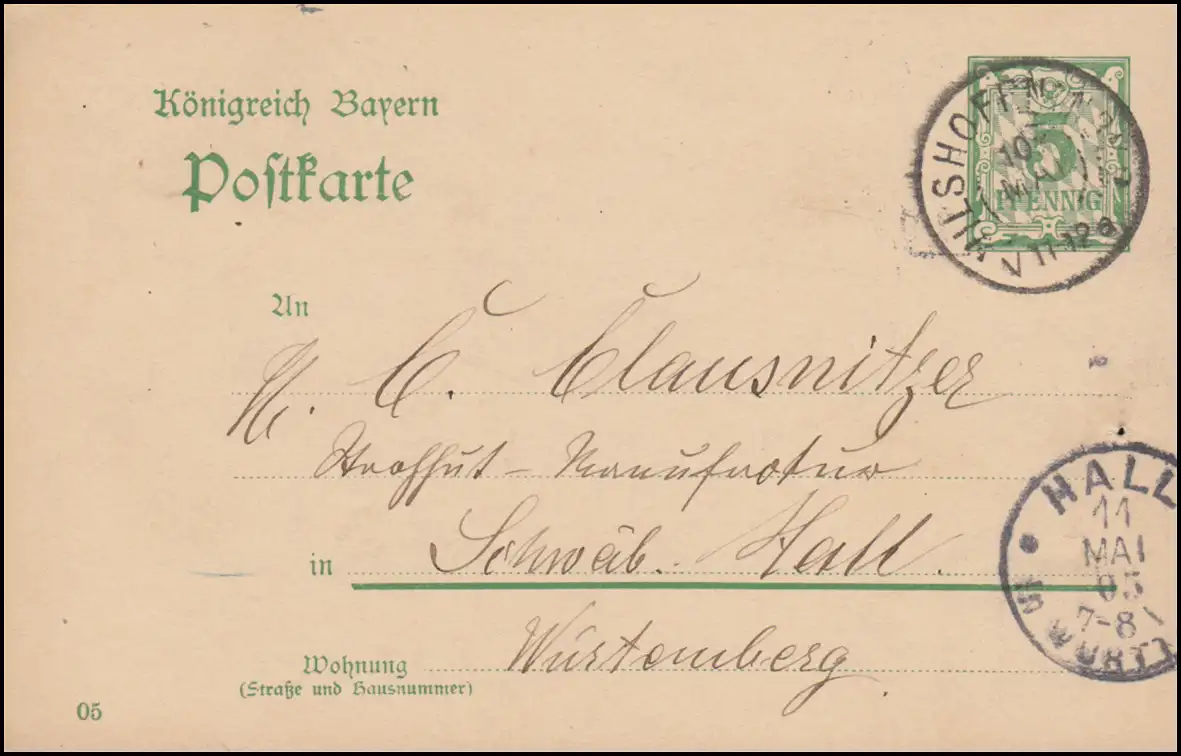 Königreich Bayern
Postkarte
5
PFENNIG
VILSHOFEN
10
MAI
V 11-12a
An
H. C. Clausnitzer
Strohhut-Manufactur
in Schwäb. Hall.
Würtemberg
Wohnung
(Straße und Hausnummer)
05
HALL
11
MAI
05
7-8
IN WÜRTT